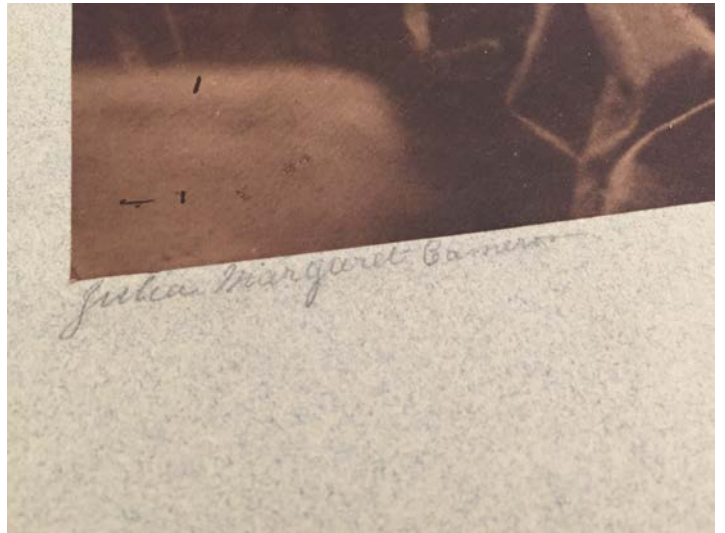 Julia Margaret Cameron